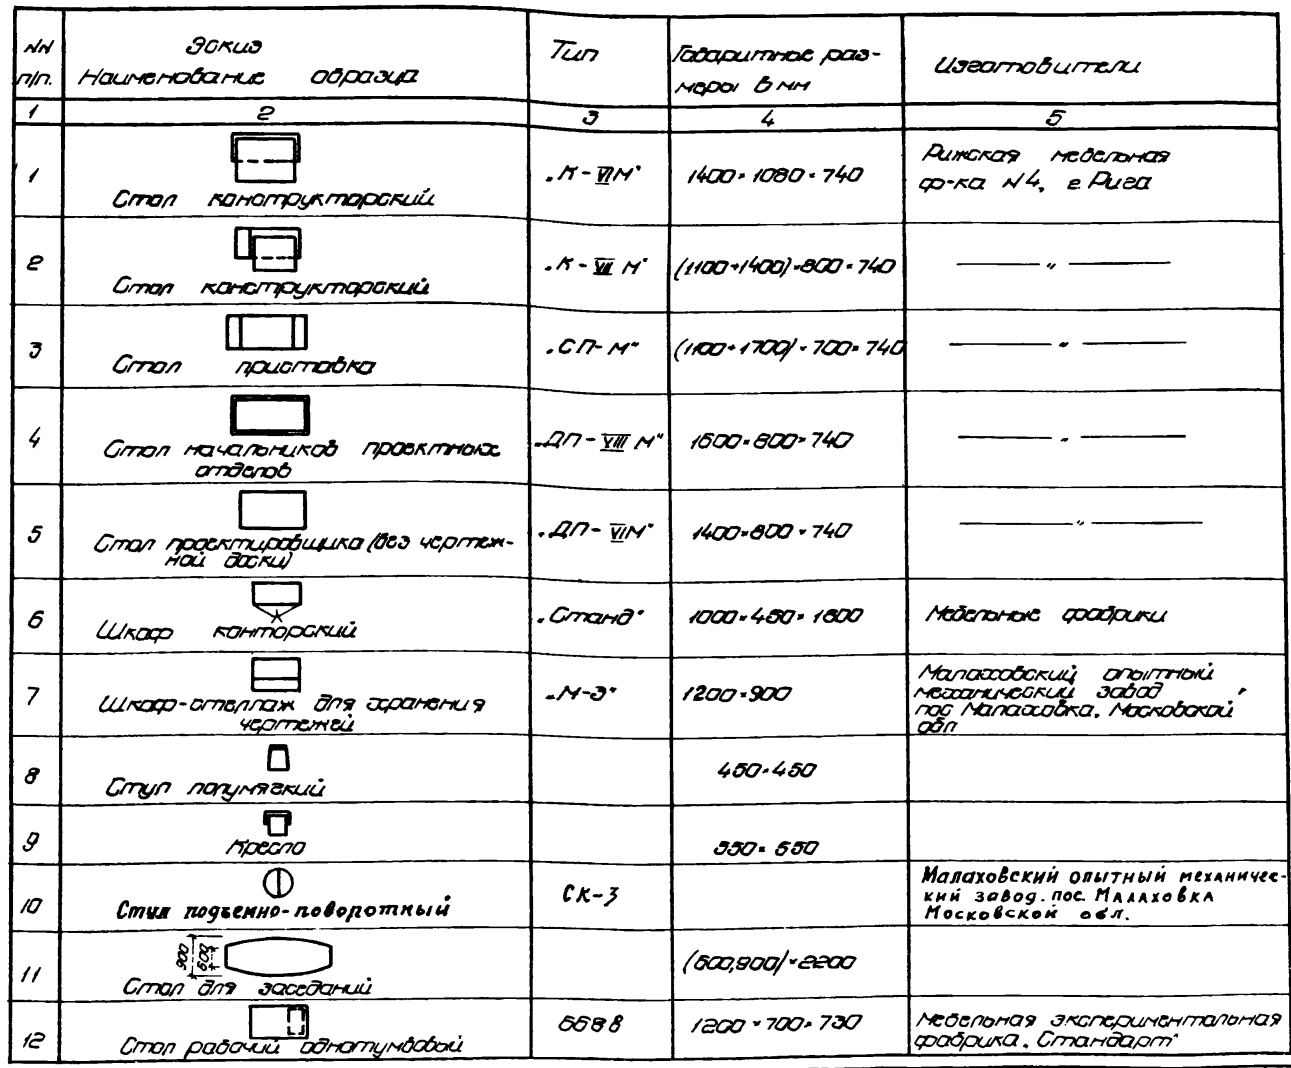 NN п/п.
Эскиз
Наименование образца
Тип
Габаритные раз-
меры в мм
Изготовители
1 2 3 4 5
1
Стол конструкторский
„К-VIМ"
1400×1080×740
Рижская мебельная
ф-ка N4, г Рига
2
Стол конструкторский
„К-VII М"
(1100+1400)×800×740
— " —
3
Стол приставка
„СП-М"
(1100+1700)×700×740
— " —
4
Стол начальников проектных
отделов
„ДП-VIII М"
1600×800×740
— " —
5
Стол проектировщика (без чертеж-
ной доски)
„ДП-VIМ"
1400×800×740
— " —
6
Шкаф конторский
„Станд"
1000×450×1800
Мебельные фабрики
7
Шкаф-стеллаж для хранения
чертежей
„М-3"
1200×900
Малаховский опытный
механический завод
пос Малаховка, Московской
обл
8
Стул полумягкий
450×450
9
Кресло
550×650
10
Стул подъемно-поворотный
СК-3
Малаховский опытный механичес-
кий завод. пос. Малаховка
Московской обл.
11
900
600
Стол для заседаний
(600,900)×2200
12
Стол рабочий однотумбовый
6688
1200×700×730
Мебельная экспериментальная
фабрика „Стандарт"